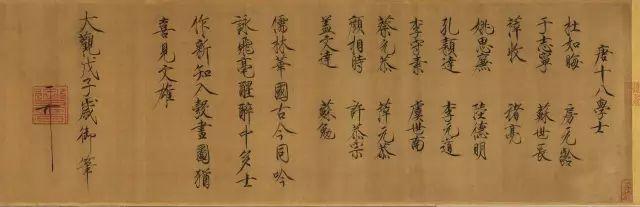 唐十八學士
杜如晦　房元齡
于志寧　蘇世長
薛收　褚亮
姚思廉　陸德明
孔穎達　李元道
李守素　虞世南
蔡允恭　薛元恭
顏相時　許恭宗
蓋文達　蘇勉
儒林華國古今同吟
詠飛毫醒醉中多士
作新知入彀畫圖猶
喜見文雄
大觀戊子歲御筆